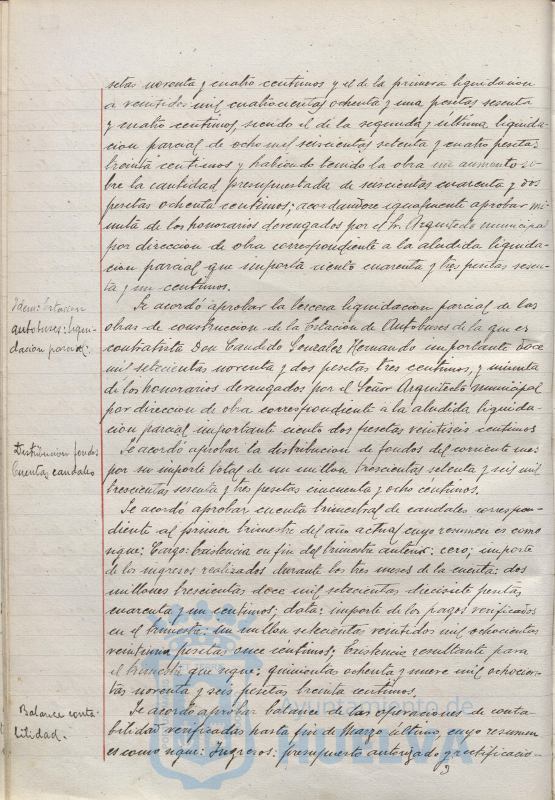 setas noventa y cuatro centimos y el de la primera liquidacion
a veintidos mil cuatrocientas ochenta y una pesetas sesenta
y cuatro centimos, siendo el de la segunda y última liquida-
cion parcial de ocho mil seiscientas setenta y cuatro pesetas
treinta centimos y habiendo tenido la obra un aumento so-
bre la cantidad presupuestada de seiscientas cuarenta y dos
pesetas ochenta centimos; acordandose igualmente aprobar mi-
nuta de los honorarios devengados por el Sr. Arquitecto municipal
por direccion de obra correspondiente a la aludida liquida-
cion parcial que importa ciento cuarenta y tres pesetas sesen-
ta y un centimos.
Idem: Estacion
autobuses: liqui-
dacion parcial.
Se acordó aprobar la tercera liquidacion parcial de las
obras de construccion de la Estacion de Autobuses de la que es
contratista Don Candido Gonzalez Hernando importante doce
mil setecientas noventa y dos pesetas tres centimos, y minuta
de los honorarios devengados por el Señor Arquitecto municipal
por direccion de obra correspondiente a la aludida liquida-
cion parcial importante ciento dos pesetas veintiseis centimos
Distribucion fondos
Cuentas caudales
Se acordó aprobar la distribucion de fondos del corriente mes
por su importe total de un millon trescientas setenta y seis mil
trescientas sesenta y tres pesetas cincuenta y ocho centimos.
Se acordo aprobar cuenta trimestral de caudales correspon-
diente al primer trimestre del año actual cuyo resumen es como
sigue: Cargo: Existencia en fin del trimestre anterior: cero; importe
de los ingresos realizados durante los tres meses de la cuenta: dos
millones trescientas doce mil setecientas diecisiete pesetas
cuarenta y un centimos; data: importe de los pagos verificados
en el trimestre: un millon setecientas veintidos mil ochocientas
veintiuna pesetas once centimos; Existencia resultante para
el trimestre que sigue: quinientas ochenta y nueve mil ochocien-
tas noventa y seis pesetas treinta centimos.
Balance conta-
bilidad.
Se acordó aprobar balance de las operaciones de conta-
bilidad verificadas hasta fin de Marzo último, cuyo resumen
es como sigue: Ingresos: presupuesto autorizado y rectificacio-
Ayuntamiento de